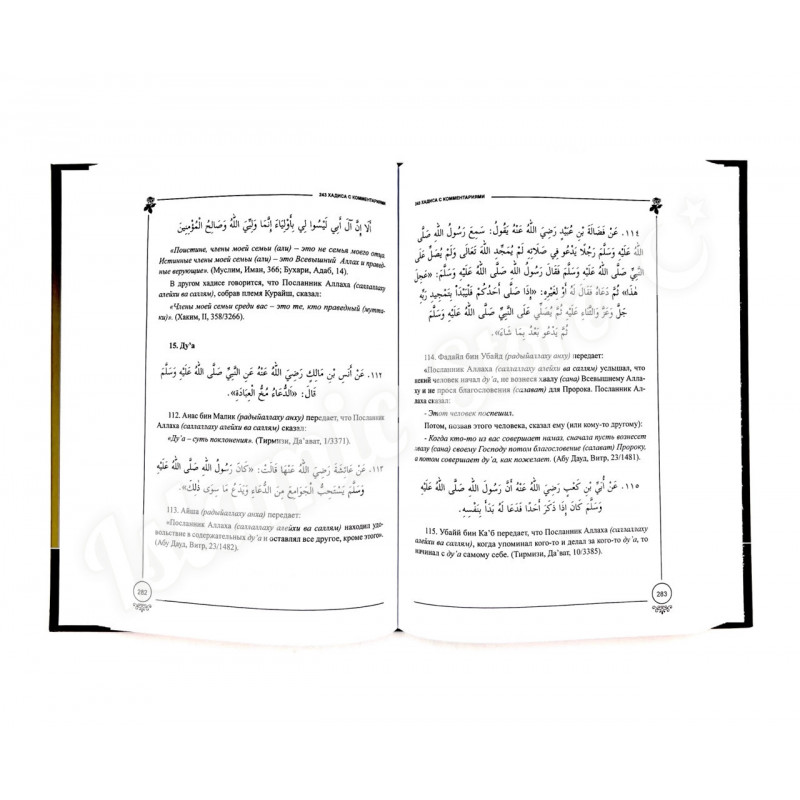 243 ХАДИСА С КОММЕНТАРИЯМИ
أَلَا إِنَّ آلَ أَبِي لَيْسُوا لِي بِأَوْلِيَاءَ إِنَّمَا وَلِيِّيَ اللهُ وَصَالِحُ الْمُؤْمِنِينَ
«Поистине, члены моей семьи (али) – это не семья моего отца.
Истинные члены моей семьи (али) – это Всевышний Аллах и правед-
ные верующие». (Муслим, Иман, 366; Бухари, Адаб, 14).
В другом хадисе говорится, что Посланник Аллаха (саллаллаху
алейхи ва саллям), собрав племя Курайш, сказал:
«Члены моей семьи среди вас – это те, кто праведный (мутта-
ки)». (Хаким, II, 358/3266).
15. Ду‘а
١١٢. عَنْ أَنَسِ بْنِ مَالِكٍ رَضِيَ اللهُ عَنْهُ عَنِ النَّبِيِّ صَلَّى اللهُ عَلَيْهِ وَسَلَّمَ
قَالَ: «اَلدُّعَاءُ مُخُّ الْعِبَادَةِ».
112. Анас бин Малик (радыйаллаху анху) передает, что Посланник
Аллаха (саллаллаху алейхи ва саллям) сказал:
«Ду‘а – суть поклонения». (Тирмизи, Да‘ават, 1/3371).
١١٣. عَنْ عَائِشَةَ رَضِيَ اللهُ عَنْهَا قَالَتْ: «كَانَ رَسُولُ اللهِ صَلَّى اللهُ عَلَيْهِ
وَسَلَّمَ يَسْتَحِبُّ الْجَوَامِعَ مِنَ الدُّعَاءِ وَيَدَعُ مَا سِوَى ذٰلِكَ».
113. Айша (радыйаллаху анха) передает:
«Посланник Аллаха (саллаллаху алейхи ва саллям) находил удо-
вольствие в содержательных ду‘а и оставлял все другое, кроме этого».
(Абу Дауд, Витр, 23/1482).
282
243 ХАДИСА С КОММЕНТАРИЯМИ
١١٤. عَنْ فَضَالَةَ بْنِ عُبَيْدٍ رَضِيَ اللهُ عَنْهُ يَقُولُ: سَمِعَ رَسُولُ اللهِ صَلَّى
اللهُ عَلَيْهِ وَسَلَّمَ رَجُلًا يَدْعُو فِي صَلَاتِهِ لَمْ يُمَجِّدِ اللهَ تَعَالَى وَلَمْ يُصَلِّ عَلَى
النَّبِيِّ صَلَّى اللهُ عَلَيْهِ وَسَلَّمَ فَقَالَ رَسُولُ اللهِ صَلَّى اللهُ عَلَيْهِ وَسَلَّمَ: «عَجِلَ
هٰذَا» ثُمَّ دَعَاهُ فَقَالَ لَهُ أَوْ لِغَيْرِهِ: «إِذَا صَلَّى أَحَدُكُمْ فَلْيَبْدَأْ بِتَمْجِيدِ رَبِّهِ
جَلَّ وَعَزَّ وَالثَّنَاءِ عَلَيْهِ ثُمَّ يُصَلِّي عَلَى النَّبِيِّ صَلَّى اللهُ عَلَيْهِ وَسَلَّمَ
ثُمَّ يَدْعُو بَعْدُ بِمَا شَاءَ».
114. Фадайл бин Убайд (радыйаллаху анху) передает:
«Посланник Аллаха (саллаллаху алейхи ва саллям) услышал, что
некий человек начал ду‘а, не вознеся хвалу (сана) Всевышнему Алла-
ху и не прося благословения (салават) для Пророка. Посланник Ал-
лаха сказал:
- Этот человек поспешил.
Потом, позвав этого человека, сказал ему (или кому-то другому):
- Когда кто-то из вас совершает намаз, сначала пусть вознесет
хвалу (сана) своему Господу потом благословение (салават) Пророку,
а потом совершает ду‘а, как пожелает. (Абу Дауд, Витр, 23/1481).
١١٥. عَنْ أُبَيِّ بْنِ كَعْبٍ رَضِيَ اللهُ عَنْهُ أَنَّ رَسُولَ اللهِ صَلَّى اللهُ عَلَيْهِ
وَسَلَّمَ كَانَ إِذَا ذَكَرَ أَحَدًا فَدَعَا لَهُ بَدَأَ بِنَفْسِهِ.
115. Убайй бин Ка‘б передает, что Посланник Аллаха (саллаллаху
алейхи ва саллям), когда упоминал кого-то и делал за кого-то ду‘а, то
начинал с ду‘а самому себе. (Тирмизи, Да‘ават, 10/3385).
283